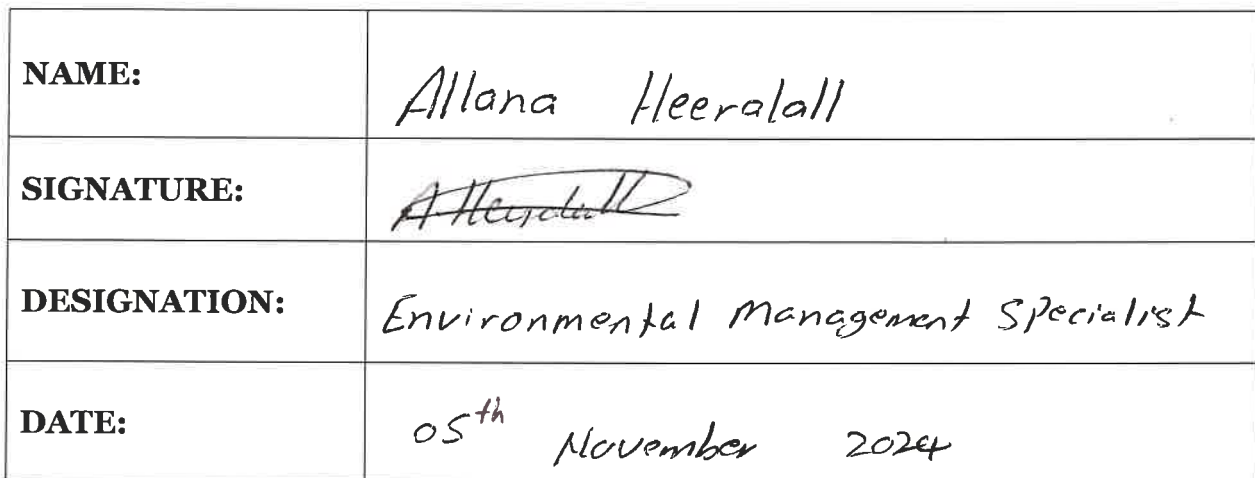 NAME: Allana Heeralall
SIGNATURE: AHeeralall
DESIGNATION: Environmental Management Specialist
DATE: 05th November 2024